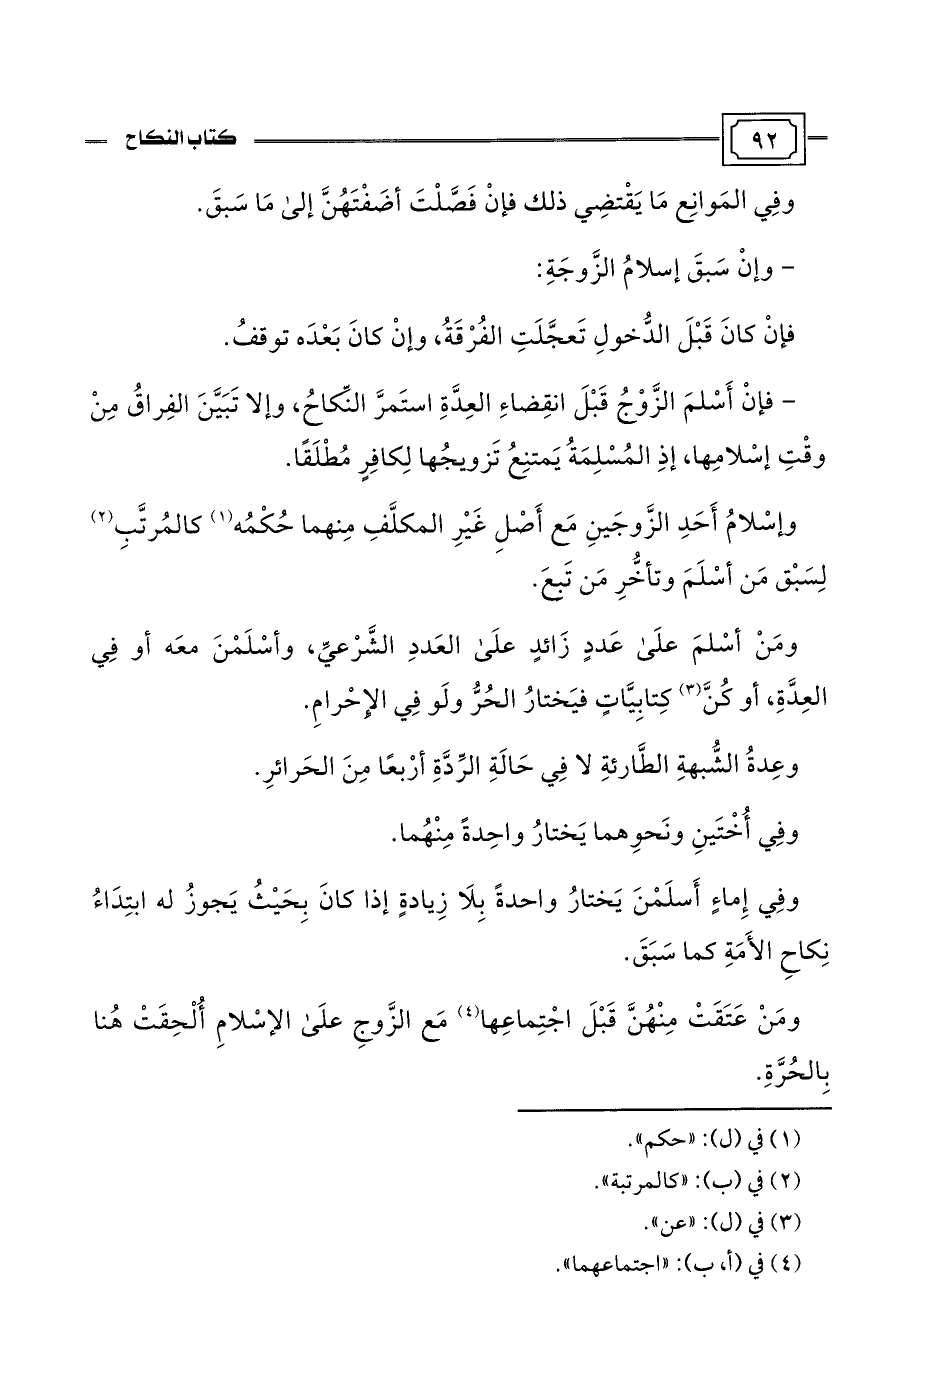 ٩٢ كتاب النكاح
وفِي المَوانِع مَا يَقْتضِي ذلك فإنْ فَصَّلْتَ أضَفْتَهُنَّ إلىٰ مَا سَبقَ.
– وإنْ سَبقَ إسلامُ الزَّوجَةِ:
فإنْ كانَ قَبْلَ الدُّخولِ تَعجَّلَتِ الفُرْقَةُ، وإنْ كانَ بَعْدَه توقفُ.
– فإنْ أَسْلمَ الزَّوْجُ قَبْلَ انقِضاءِ العِدَّةِ استَمرَّ النِّكاحُ، وإلا تَبَيَّنَ الفِراقُ مِنْ
وقْتِ إسْلامِها، إذِ المُسْلِمَةُ يَمتنِعُ تَزويجُها لِكافِرٍ مُطْلَقًا.
وإسْلامُ أَحَدِ الزَّوجَينِ مَع أَصْلِ غَيْرِ المكلَّفِ مِنهما حُكْمُه(١) كالمُرتَّبِ(٢)
لِسَبْق مَن أسْلَمَ وتأخُّرِ مَن تَبِعَ.
ومَنْ أسْلمَ علَىٰ عَددٍ زَائدٍ علَىٰ العَددِ الشَّرْعيِّ، وأسْلَمْنَ معَه أو فِي
العِدَّةِ، أو كُنَّ(٣) كِتابِيَّاتٍ فيَختارُ الحُرُّ ولَو فِي الإحْرامِ.
وعِدةُ الشُّبهةِ الطَّارئةِ لا فِي حَالَةِ الرِّدَّةِ أرْبعًا مِنَ الحَرائرِ.
وفِي أُخْتَينِ ونَحوِهما يَختارُ واحِدةً مِنْهُما.
وفِي إماءٍ أَسلَمْنَ يَختارُ واحدةً بِلَا زِيادةٍ إذا كانَ بِحَيْثُ يَجوزُ له ابتِدَاءُ
نِكاحِ الأَمَةِ كما سَبَقَ.
ومَنْ عَتَقَتْ مِنْهُنَّ قَبْلَ اجْتِماعِها(٤) مَع الزَّوجِ علَىٰ الإسْلامِ أُلْحِقَتْ هُنا
بِالحُرَّةِ.
(١) في (ل): «حكم».
(٢) في (ب): «كالمرتبة».
(٣) في (ل): «عن».
(٤) في (أ، ب): «اجتماعهما».